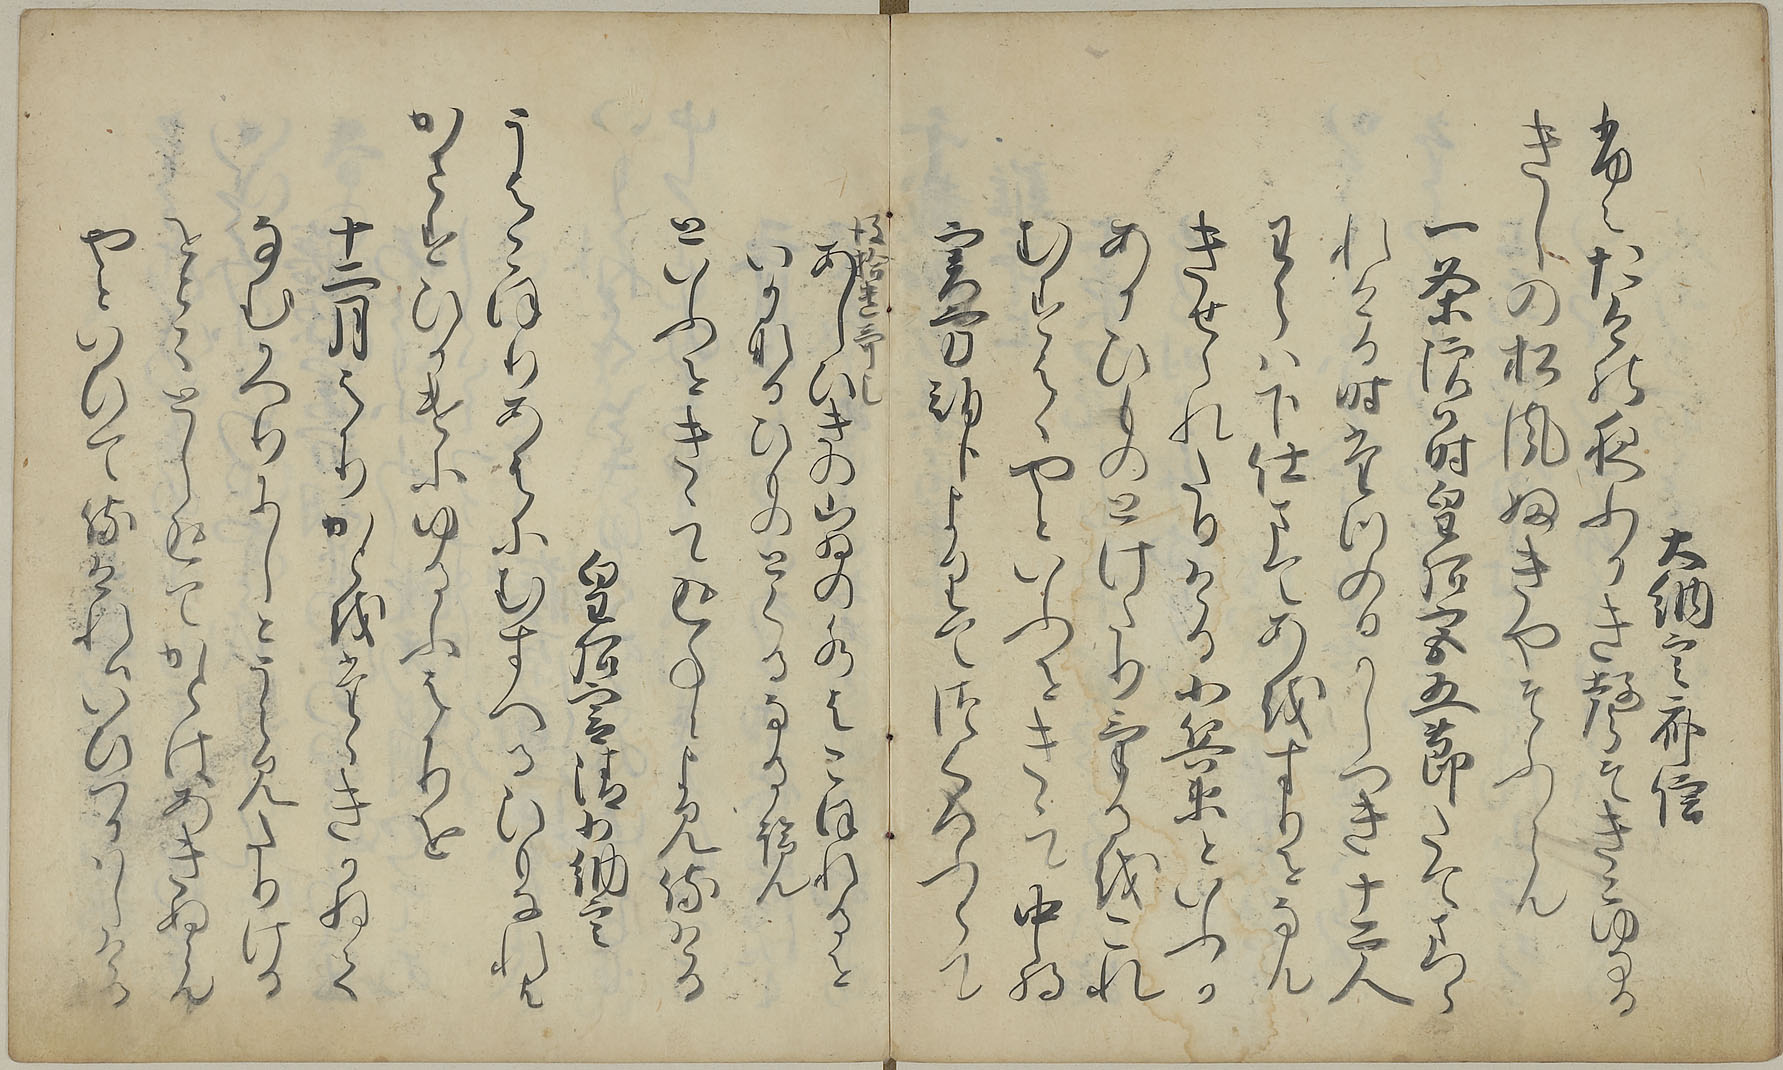 大納言斉信
ふかき聲そきこゆなる
きしの松風ふきやそふらん
一条院御時皇后宮五節たてまつら
れける時たつの日かしつき十二人
わらは下仕まてあをすりをなん
きせられたりけるに小兵衛といふか
あかひものとけたりけるをこれ
むすはゝやといふをきゝて中将
実方朝臣よりてつくろふとて
あしひきの山ゐの水はこほれるを
いかなるひものとくるなるらん
といふをきゝて返ことによみ侍ける
皇后宮清少納言
うはこほりあはにむすへるひもなれは
かさすひかけにゆるふはかりを
十二月はかりかとをたゝきかねて
なむかへりにしとうらみたりける
をとことしかへりてかとはあきぬらん
やといひて侍けれはいひつかはしける